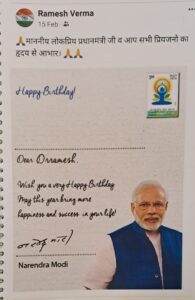 Ramesh Verma
15 Feb
🙏माननीय लोकप्रिय प्रधानमंत्री जी व आप सभी प्रियजनो का
हृदय से आभार। 🙏🙏
Happy Birthday!
Dear Orramesh,
Wish you a very Happy Birthday
May this year bring more
happiness and success in your life!
Narendra Modi